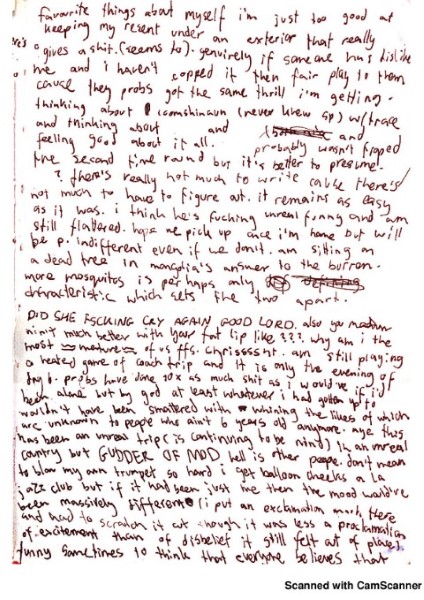 favourite things about myself i'm just too good at
keeping my resent under an exterior that really
gives a shit. (seems to). genuirely if someone has dislike
me and i haven't copped it then fair play to them
cause they probs got the same thrill i'm getting.
thinking about (never knew sp) w/
and thinking about and and
feeling good about it all. probably wasn't
the second time round but it's better to presume.
? there's really not much to write cause there's
not much to have to figure out. it remains as easy
as it was. i think he's fucking unreal funny and am
still flattered. hope we pick up once i'm home but will
be p. indifferent even if we don't. am sitting on
a dead tree in mongolia's answer to the burren.
more mosquitos is perhaps only defining
characteristic which sets the two apart.
DID SHE FSCKING CRY AGAIN GOOD LORD. also you
much better with your fat lip like ???. why am i the
most mature of us ffs. chrisssssht. am still playing
a heated game of coach trip and it is only the evening of
day 6. probs have done 10x as much shit as i would've if i'd
been alone but by god at least whatever i had gotten up to
wouldn't have been smattered with whining the likes of which
are unknown to people who ain't 6 years old anymore. aye this
has been an unreal trip (& is continuing to be mind) in an unreal
country but GUDDER OF MOD hell is other people. don't mean
to blow my own trumpet so hard i get balloon cheeks a la
jazz club but if it had been just me then the mood would've
been massively different (i put an exclamation mark there
and had to scratch it out though it was less a proclamation
of excitement than of disbelief it still felt out of place)
funny sometimes to think that everyone believes that
Scanned with CamScanner